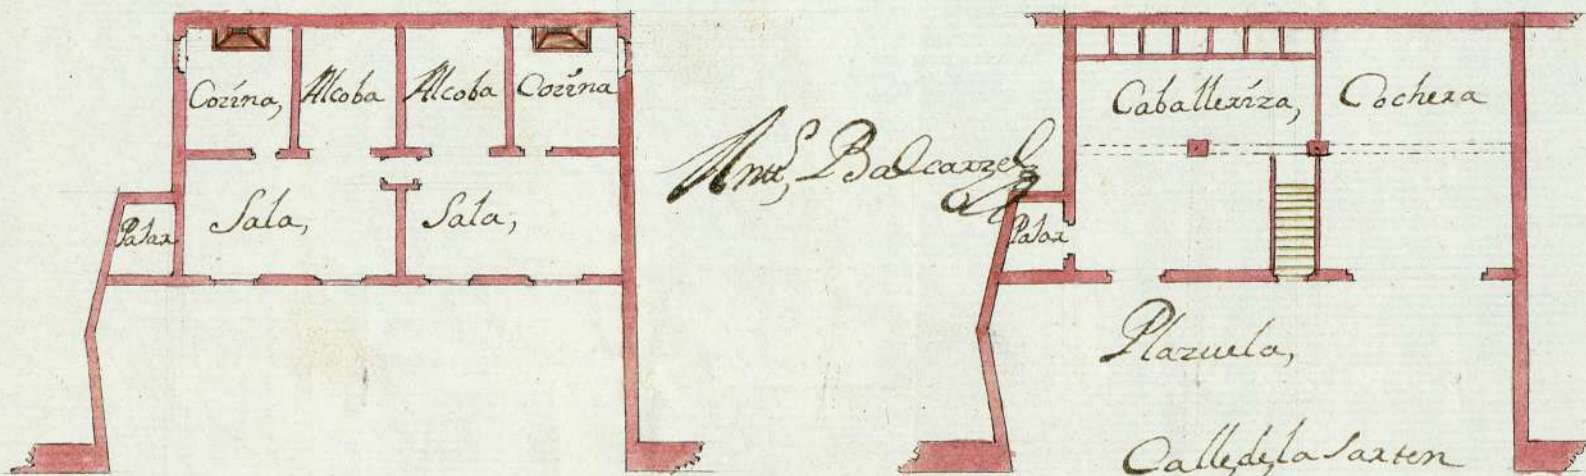 Cozina, Alcoba Alcoba Cozina
Sala, Sala,
Pajar
Antt, Balcarzel
Caballeriza, Cochera
Pajar
Plazuela,
Calle de la Sarten